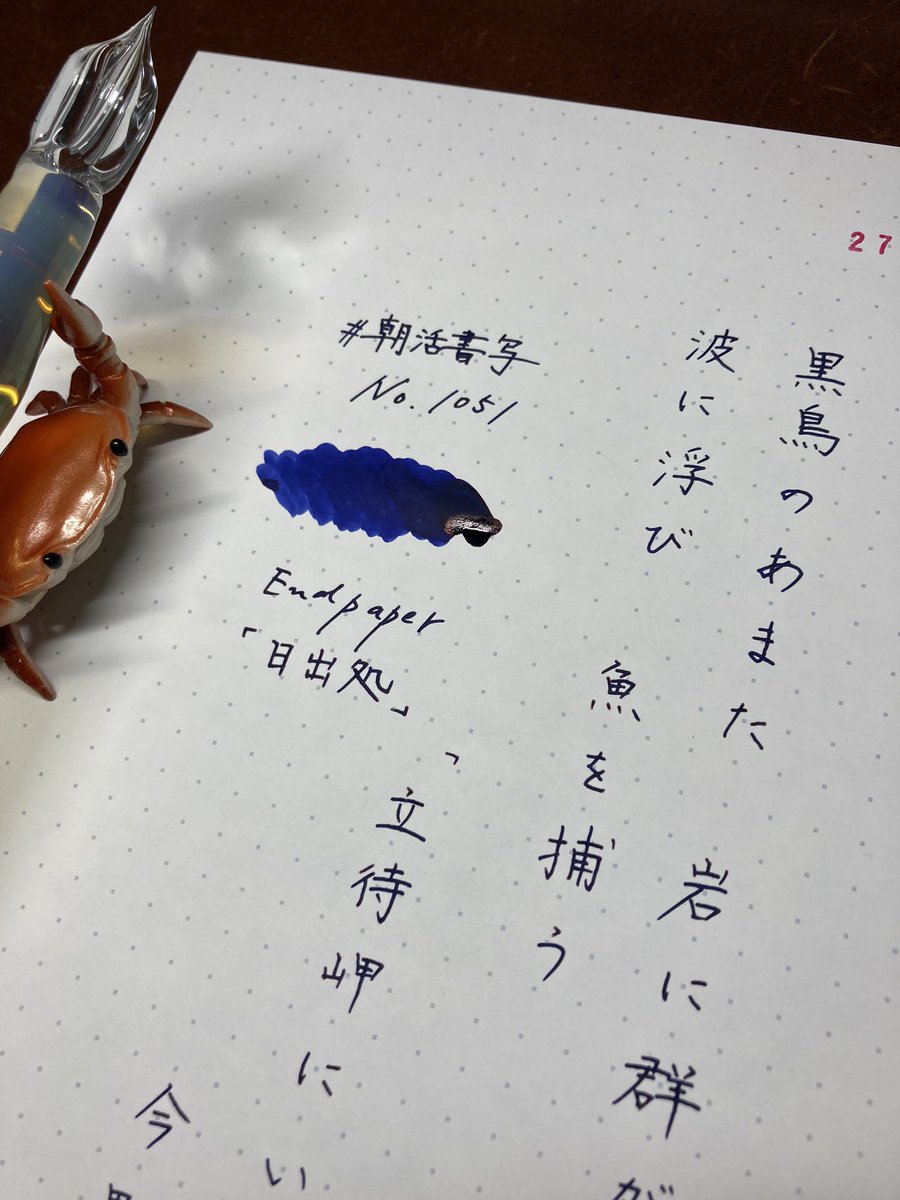 27
黒鳥のあまた 岩に群が
波に浮び 魚を捕う
#朝活書写
No. 1051
Endpaper
「日出処」
「立待岬にい
今